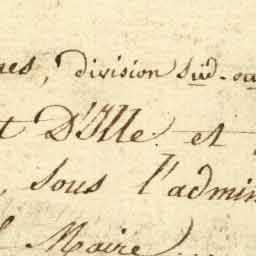 nes, division sud-ou
t D'Ille et
, sous l'admin
Maire